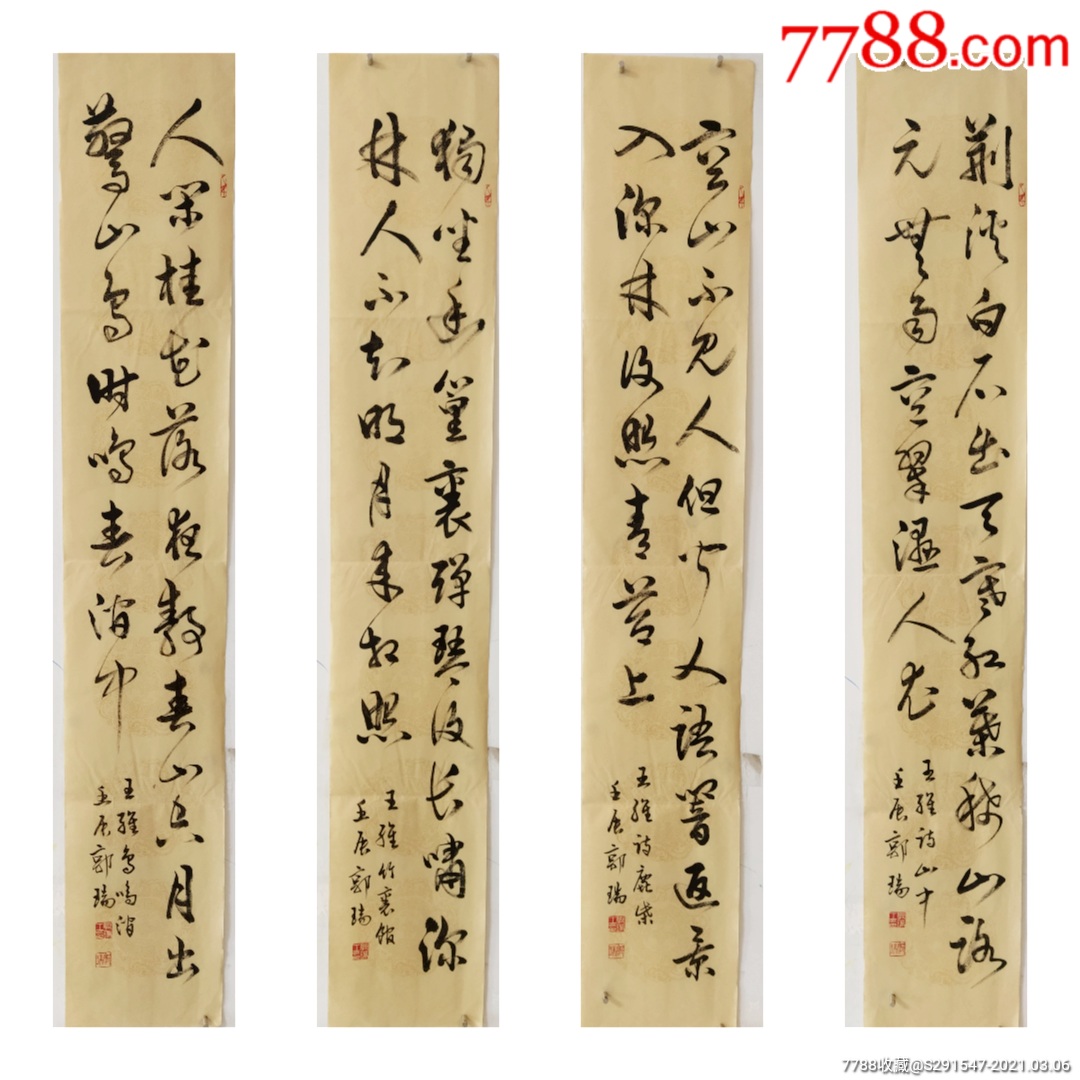 7788.com
荆溪白石出天寒红葉稀山路
元無雨空翠濕人衣
王維诗山中
壬辰郭瑞
空山不見人但闻人语響返景
入深林復照青苔上
王維诗鹿柴
壬辰郭瑞
獨坐幽篁裏彈琴復长嘯深
林人不知明月来相照
王維竹裏館
壬辰郭瑞
人闲桂花落夜静春山空月出
驚山鳥時鳴春涧中
王維鳥鳴涧
壬辰郭瑞
7788收藏@S291547-2021.03.06